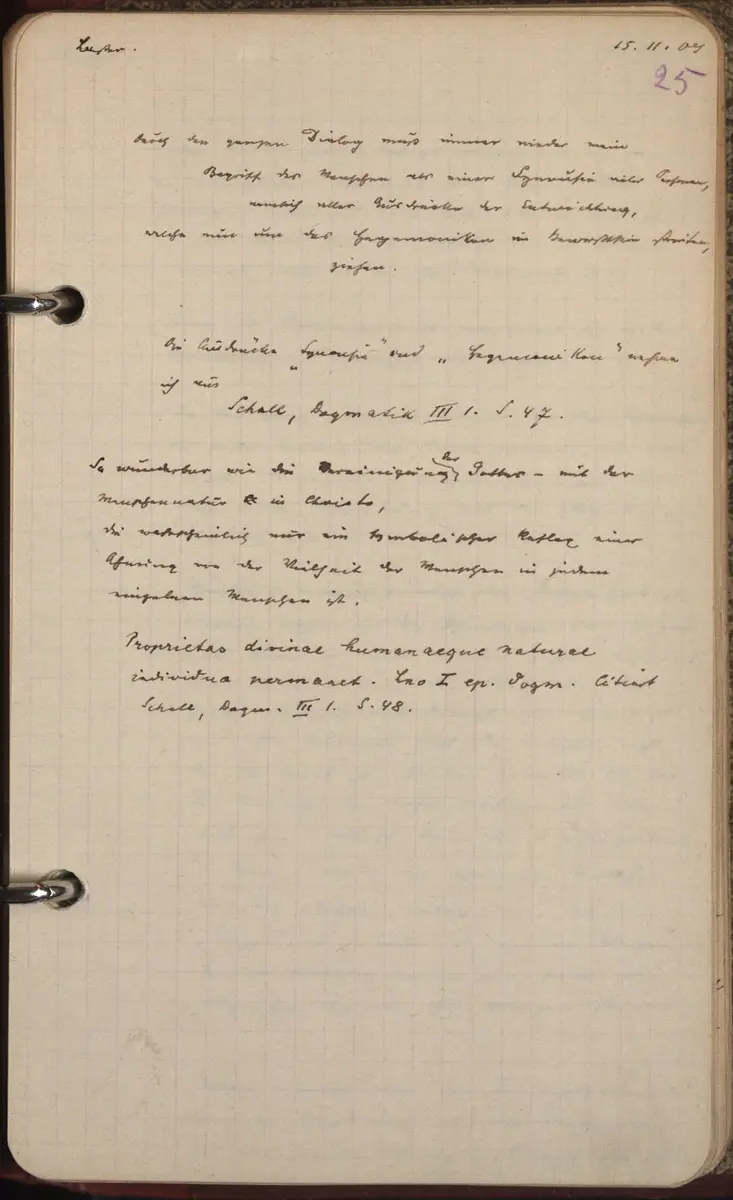 Laster.
15. 11. 07
25
Durch den ganzen Dialog muß immer wieder mein
Begriff des Menschen als einer Synousie vieler Personen,
nemlich aller Ausdrücke der Entwicklung,
welche nun um das Hegemonikon im Bewusstsein streiten,
ziehen.
Die Ausdrücke „Synousie“ und „Hegemonikon“ nehme
ich aus
Schell, Dogmatik III 1. S. 47.
So wunderbar wie die Vereinigung der Gottes – mit der
Menschennatur in Christo,
die wahrscheinlich nur ein symbolischer Reflex einer
Ahnung von der Vielheit der Menschen in jedem
einzelnen Menschen ist.
Proprietas divinae humanaeque naturae
individua permanet. Leo I ep. Dogm. Citiert
Schell, Dogm. III 1. S. 48.